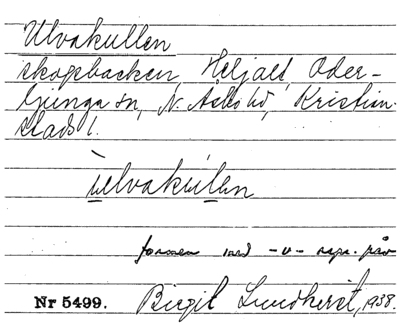 Ulvakullen
skogsbacken, Heljalt, Oder-
ljunga sn, N. Åsbo hd, Kristian-
stads l.
ùlvakúlen
formen med -v- upr. från
Nr 5499. Birgit Lundkvist, 1938.